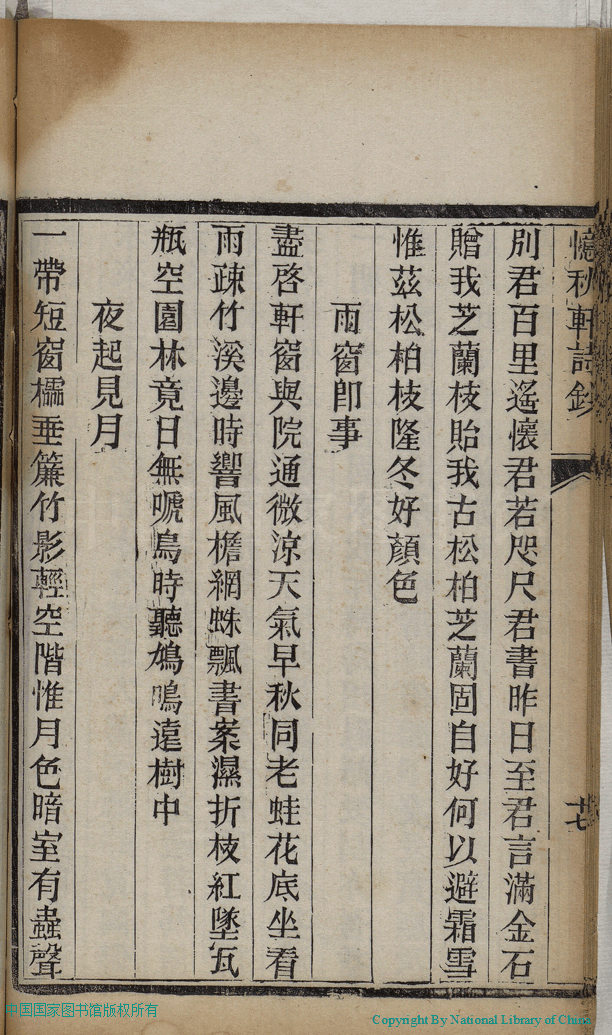 憶秋軒詩鈔
廿七
別君百里遙懷君若咫尺君書昨日至君言滿金石
贈我芝蘭枝貽我古松柏芝蘭固自好何以避霜雪
惟茲松柏枝隆冬好顏色
雨窗卽事
盡啓軒窗與院通微涼天氣早秋同老蛙花底坐看
雨疎竹溪邊時響風檐網蛛飄書案濕折枝紅墜瓦
瓶空園林竟日無嗁鳥時聽鳩鳴遠樹中
夜起見月
一帶短窗櫺垂簾竹影輕空階惟月色暗室有蟲聲
中国国家图书馆版权所有
Copyright By National Library of China